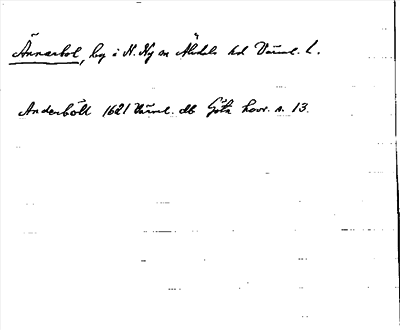 Ännerbol, by i N. Ny sn Älvdals hd Värml. l.
Anderböll 1621 Värml. db Göta hovr. s. 13.